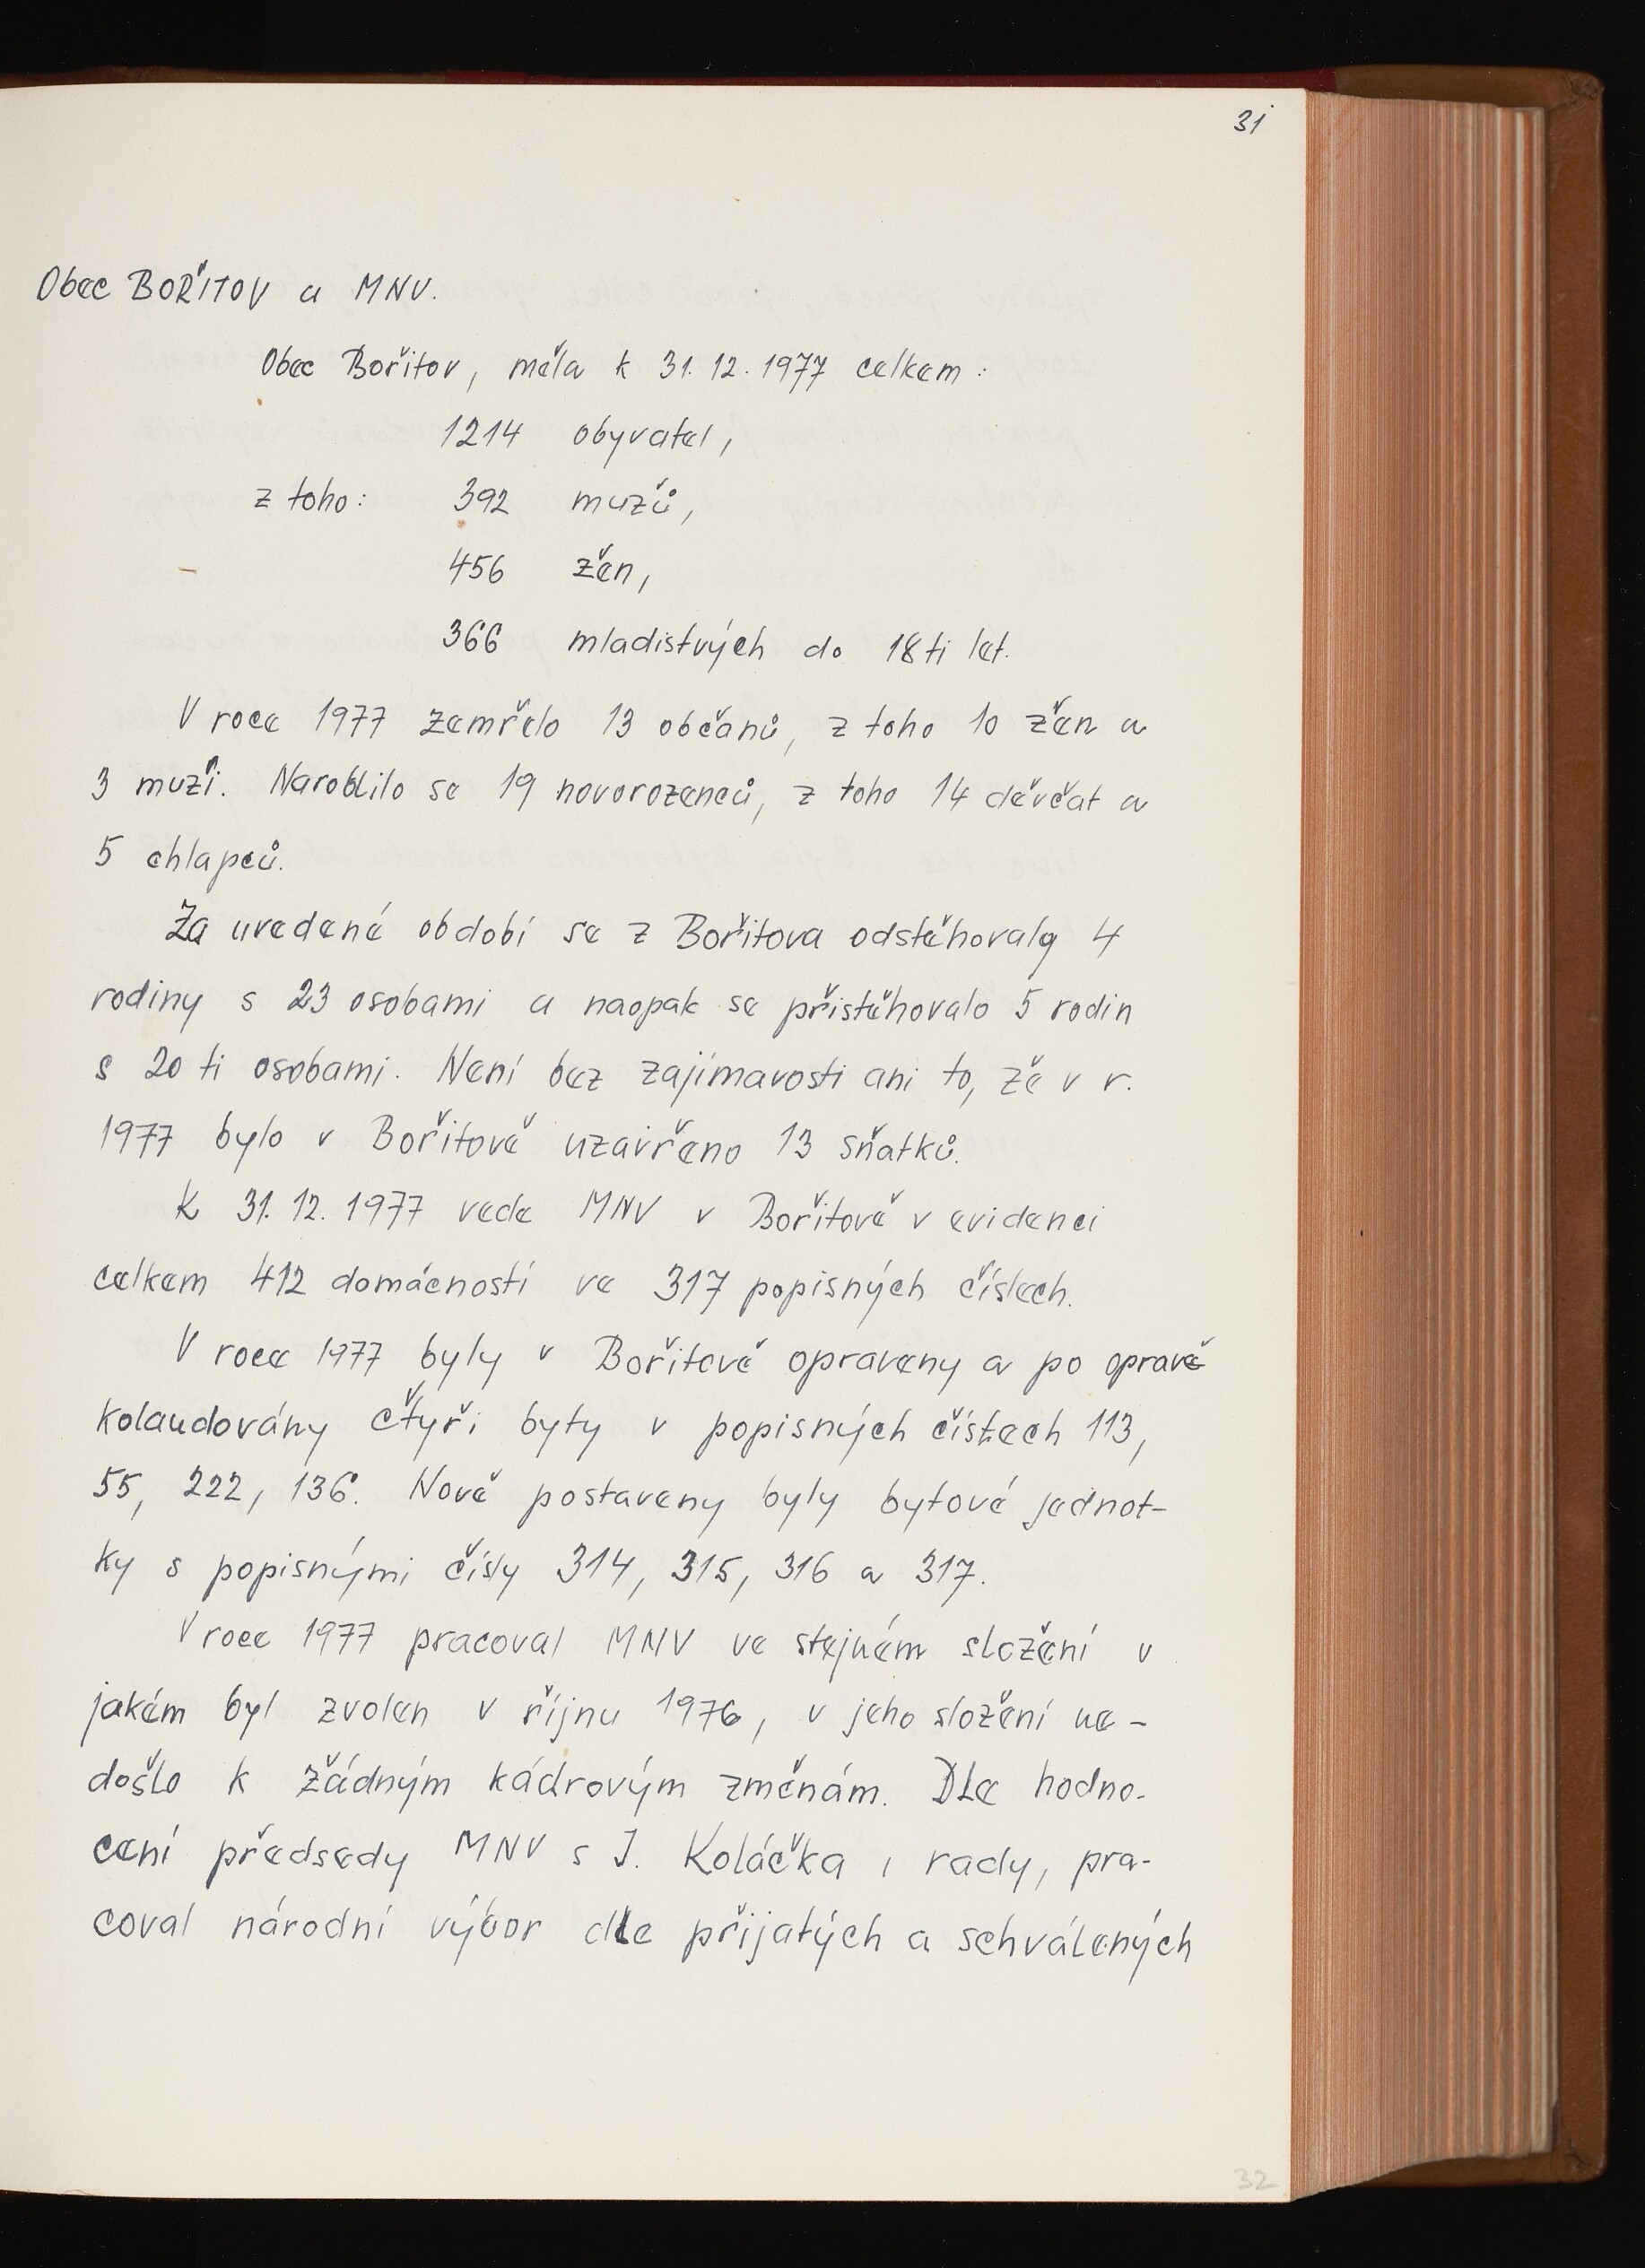 31
Obec BOŘITOV a MNV.
Obec Bořitov, měla k 31. 12. 1977 celkem:
1214 obyvatel,
z toho: 392 mužů,
456 žen,
366 mladistvých do 18ti let.
V roce 1977 zemřelo 13 občanů, z toho 10 žen a
3 muži. Narodilo se 19 novorozenců, z toho 14 děvčat a
5 chlapců.
Za uvedené období se z Bořitova odstěhovaly 4
rodiny s 23 osobami a naopak se přistěhovalo 5 rodin
s 20 ti osobami. Není bez zajímavosti ani to, že v r.
1977 bylo v Bořitově uzavřeno 13 sňatků.
K 31. 12. 1977 vede MNV v Bořitově v evidenci
celkem 412 domácností ve 317 popisných číslech.
V roce 1977 byly v Bořitově opraveny a po opravě
kolaudovány čtyři byty v popisných číslech 113,
55, 222, 136. Nově postaveny byly bytové jednot-
ky s popisnými čísly 314, 315, 316 a 317.
V roce 1977 pracoval MNV ve stejném složení v
jakém byl zvolen v říjnu 1976, v jeho složení ne-
došlo k žádným kádrovým změnám. Dle hodno-
cení předsedy MNV s J. Koláčka i rady, pra-
coval národní výbor dle přijatých a schválených
32